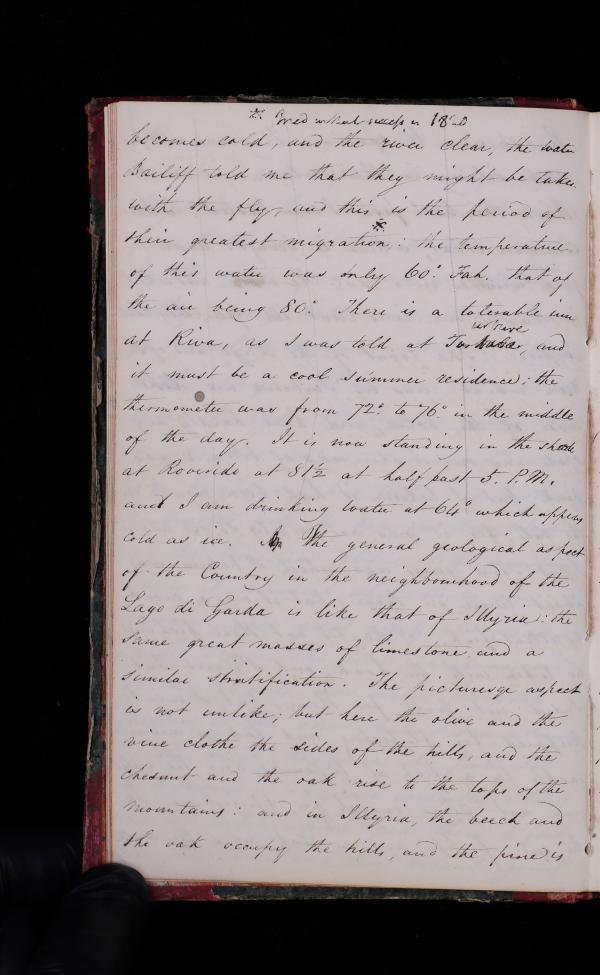 * without success in 18
becomes cold, and the river clear, the water
Bailiff told me that they might be taken
with the fly, and this is the period of
*
their greatest migration: the temperature
of this water was only 60°. Fah. that of
the air being 80°. There is a tolerable inn
at Riva, as I was told at, and
it must be a cool summer residence: the
thermometer was from 72° to 76° in the middle
of the day. It is now standing in the shade
at Roveredo at 81½ at half past 5. P.M.
and I am drinking water at 64° which appears
cold as ice. The general geological aspect
of the Country in the neighbourhood of the
Lago di Garda is like that of Illyria: the
same great masses of limestone and a
similar stratification. The picturesqe aspect
is not unlike; but here the olive and the
vine clothe the sides of the hills, and the
chesnut and the oak rise to the tops of the
mountains: and in Illyria, the beech and
the oak occupy the hills, and the pine is